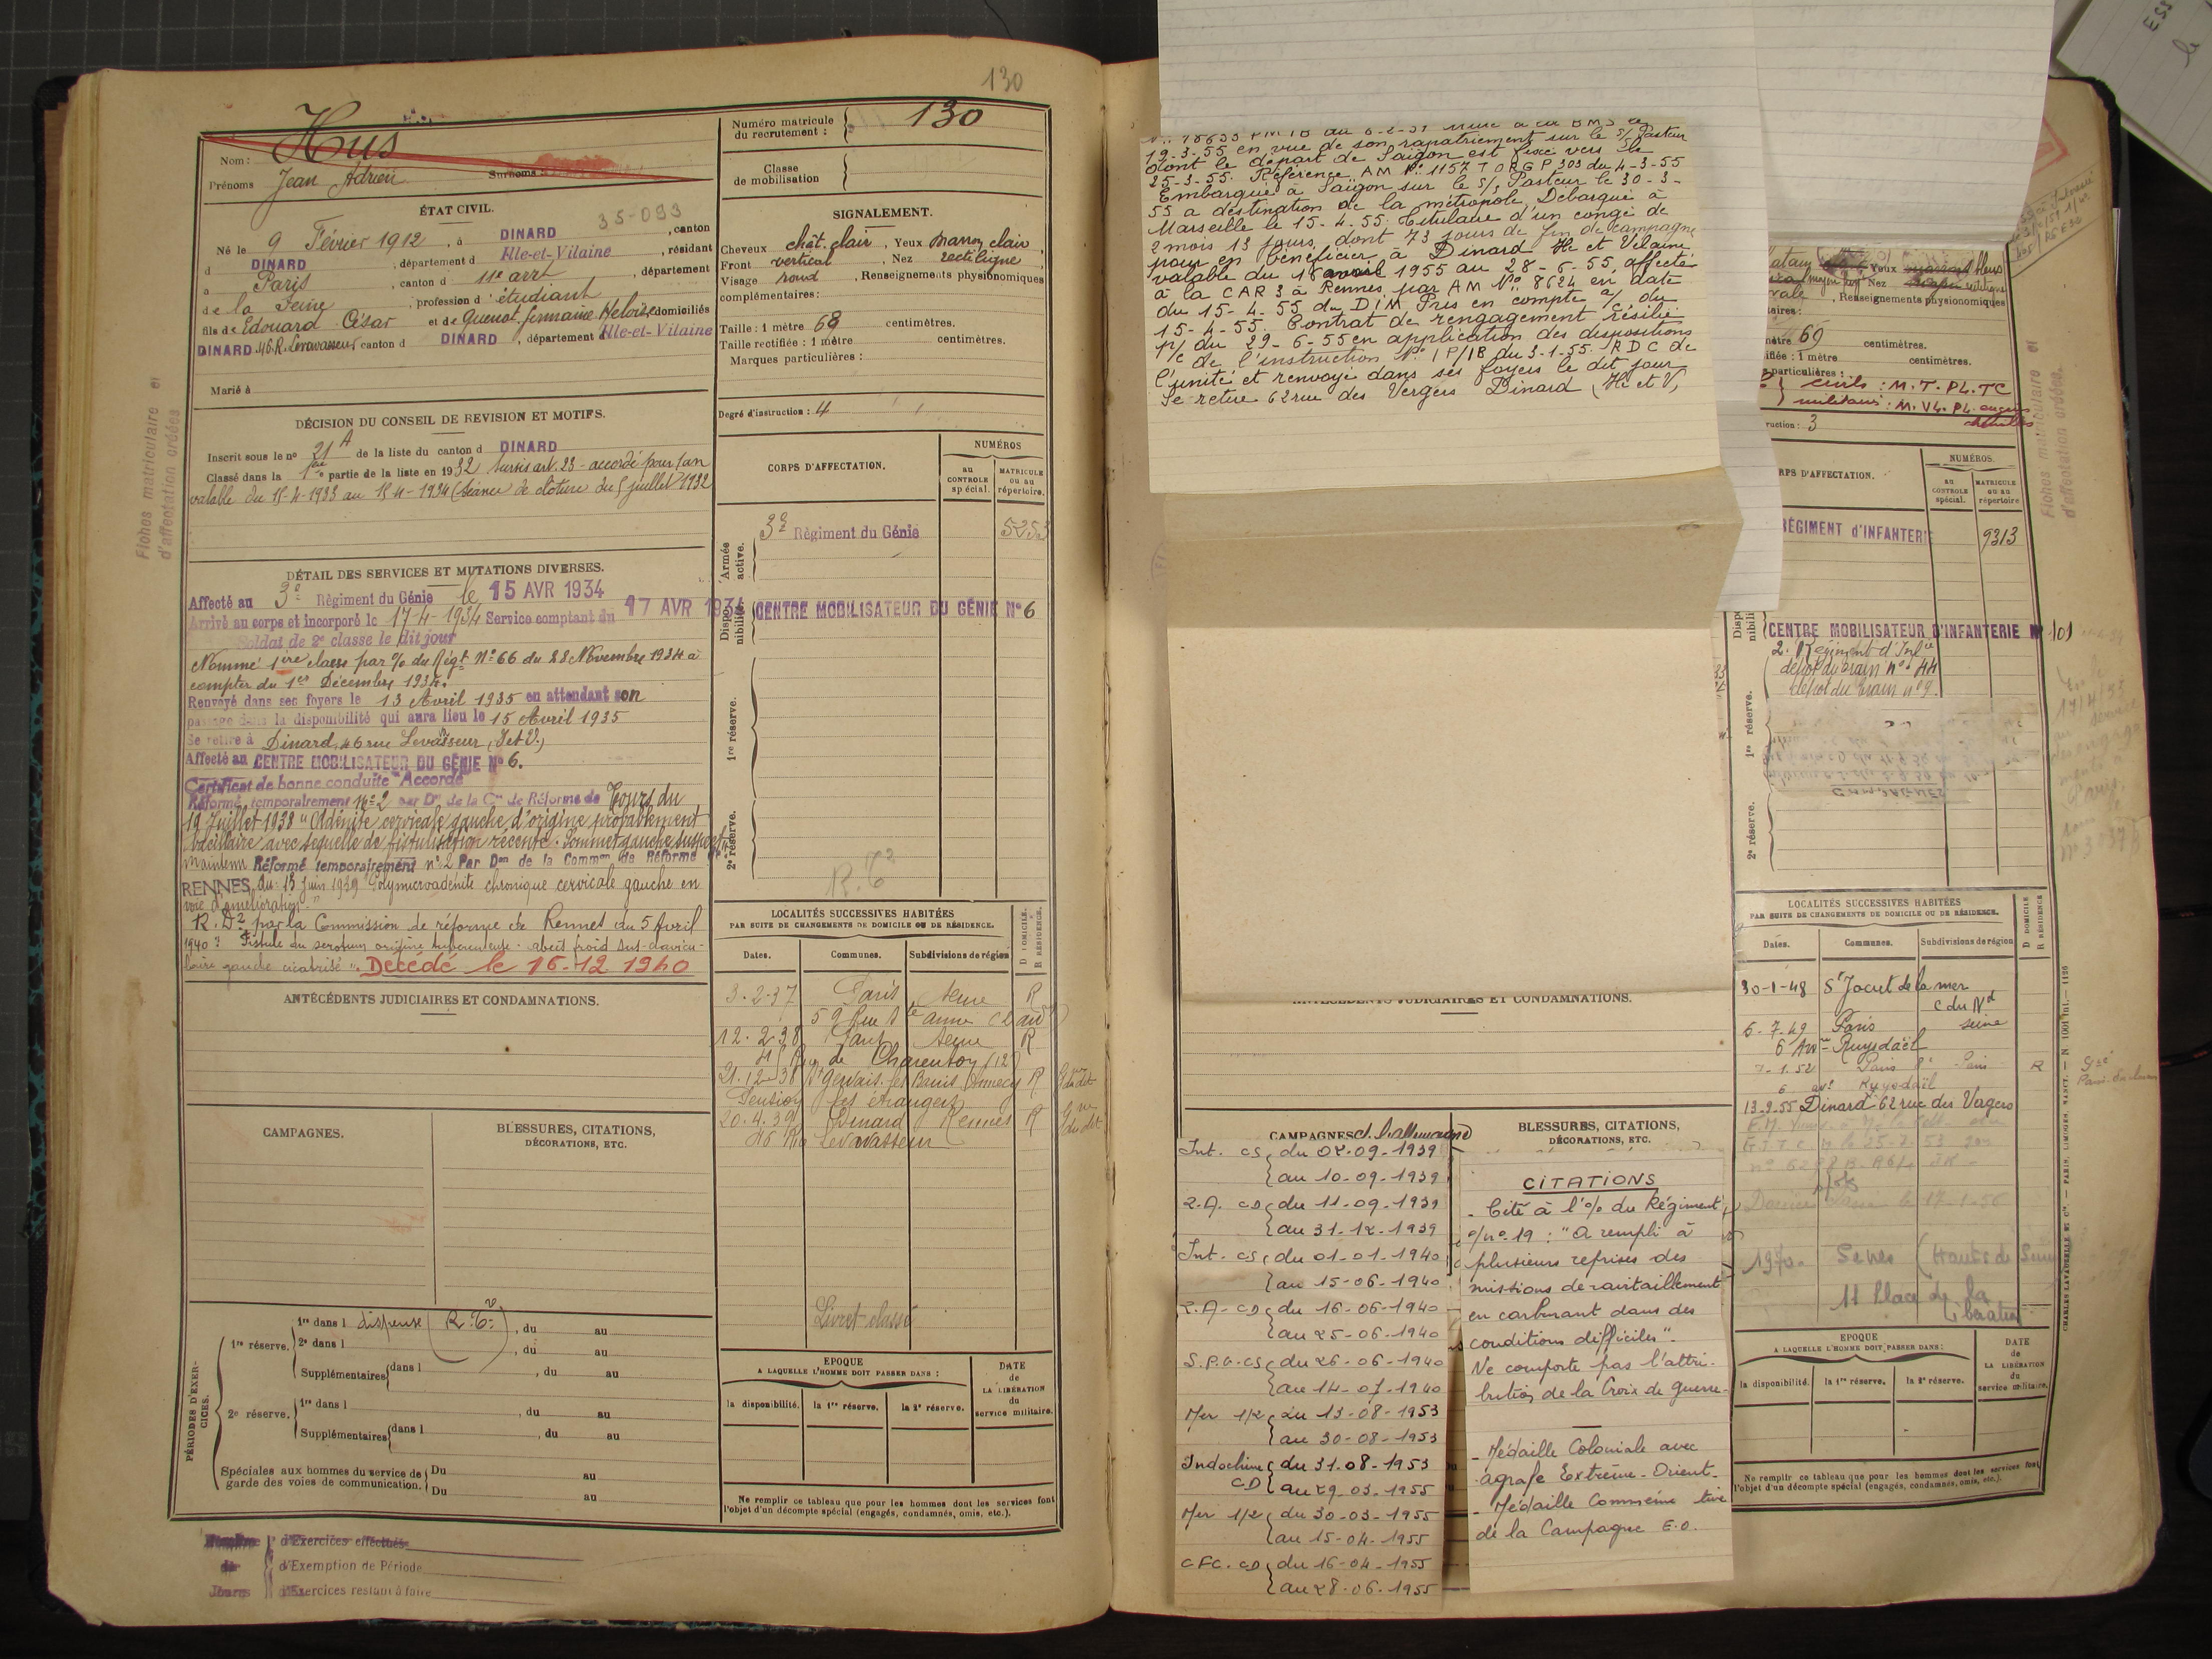 130
Nom : Hus
Prénoms Jean Adrien Surnoms :
ÉTAT CIVIL.
35-093
Né le 9 Février 1912, à DINARD, canton
d DINARD, département d Ille-et-Vilaine, résidant
à Paris, canton d 11e arrt, département
de la Seine, profession d'étudiant
fils de Edouard César et de Quenot Germaine Heloïse, domiciliés
DINARD 46 R. Levavasseur canton d DINARD, département d Ille-et-Vilaine
Marié à
DÉCISION DU CONSEIL DE REVISION ET MOTIFS.
Inscrit sous le nº 21 A de la liste du canton d DINARD
Classé dans la 1ère partie de la liste en 1932 Sursis art. 23 - accordé pour 1 an
valable du 15-4-1933 au 15-4-1934 (Séance de clôture du 5 juillet 1932
DÉTAIL DES SERVICES ET MUTATIONS DIVERSES.
Affecté au 3e Régiment du Génie le 15 AVR 1934
Arrivé au corps et incorporé le 17-4-1934 Service comptant du 17 AVR 1934
Soldat de 2e classe le dit jour
Nommé 1ère classe par % du Régt Nº 66 du 28 Novembre 1934 à
compter du 1er Décembre 1934.
Renvoyé dans ses foyers le 13 Avril 1935 en attendant son
passage dans la disponibilité qui aura lieu le 15 Avril 1935
Se retire à Dinard, 46 rue Levavasseur, (I et V.)
Affecté au CENTRE MOBILISATEUR DU GÉNIE Nº 6.
Certificat de bonne conduite "Accordé"
Réformé temporairement nº 2 par Don de la Con de Réforme de Tours du
19 Juillet 1938 "Adénite cervicale gauche d'origine probablement
bacillaire avec séquelle de fistulisation récente. Sommet gauche suspect"
Maintenu Réformé temporairement nº 2 Par Don de la Common de Réforme de
RENNES du 13 Juin 1939 "Polymicroadénite chronique cervicale gauche en
voie d'amélioration."
R. D 2 par la Commission de réforme de Rennes du 5 Avril
1940 : Fistule du scrotum origine tuberculeuse - abcès froid sus-clavicu-
laire gauche cicatrisé ". Décédé le 16-12 1940
ANTÉCÉDENTS JUDICIAIRES ET CONDAMNATIONS.
CAMPAGNES.
BLESSURES, CITATIONS,
DÉCORATIONS, ETC.
PÉRIODES D'EXERCICES.
1re réserve. 1re dans l dispense (R.T.2), du au
2e dans l , du au
Supplémentaires dans l , du au
2e réserve. 1re dans l , du au
Supplémentaires dans l , du au
Spéciales aux hommes du service de garde des voies de communication. Du au
Du au
Nombre de Jours d'Exercices effectués
d'Exemption de Période
d'Exercices restant à faire
Fiches matriculaire et
d'affectation créées
Numéro matricule
du recrutement : 130
Classe
de mobilisation
SIGNALEMENT.
Cheveux chât. clair, Yeux marron clair,
Front vertical, Nez rectiligne
Visage rond, Renseignements physionomiques
complémentaires :
Taille : 1 mètre 68 centimètres.
Taille rectifiée : 1 mètre centimètres.
Marques particulières :
Degré d'instruction : 4
CORPS D'AFFECTATION.
NUMÉROS
au CONTROLE spécial.
MATRICULE ou au répertoire.
Armée active.
3e Régiment du Génie 5253
Disponibilité
CENTRE MOBILISATEUR DU GÉNIE Nº 6
1re réserve.
2e réserve.
R.T2
LOCALITÉS SUCCESSIVES HABITÉES
PAR SUITE DE CHANGEMENTS DE DOMICILE OU DE RÉSIDENCE.
D DOMICILE.
R RÉSIDENCE.
Dates. Communes. Subdivisions de région
3-2-37 Paris Seine R
59 Rue
12.2.38 Paris Seine R
Rue de Charenton (12)
21.12.38 St Gervais les Bains Annecy R
Pension les étrangers
20.4.39 Dinard Rennes R
46 Rue Levavasseur
Livret classé
EPOQUE
A LAQUELLE L'HOMME DOIT PASSER DANS :
DATE de LA LIBÉRATION du service militaire.
la disponibilité. la 1re réserve. la 2e réserve.
Ne remplir ce tableau que pour les hommes dont les services font
l'objet d'un décompte spécial (engagés, condamnés, omis, etc.).
19-3-55 en vue de son rapatriement sur le S/S Pasteur
dont le départ de Saïgon est fixé vers le
25-3-55. Référence AM Nº 1157 TORG P 303 du 4-3-55
Embarqué à Saïgon sur le S/S Pasteur le 30-3-
55 à destination de la métropole. Débarqué à
Marseille le 15-4-55. Titulaire d'un congé de
2 mois 13 jours, dont 73 jours de fin de campagne
pour en bénéficier à Dinard Ille et Vilaine
valable du 16 avril 1955 au 28-6-55, affecté
à la CAR 3 à Rennes par AM Nº 8624 en date
du 15-4-55 du DIM Pris en compte a/ du
15-4-55. Contrat de rengagement résilié
p/c du 29-6-55 en application des dispositions
de l'instruction Nº 1P/1B du 3-1-55. RDC de
l'unité et renvoyé dans ses foyers le dit jour
Se retire 62 rue des Vergers Dinard (Ille et V)
Yeux bleus
Nez rectiligne
Renseignements physionomiques
mètre 69 centimètres.
1 mètre centimètres.
particulières :
civils : M.T.PL.TC
militaires : M.VL.PL.
3
CORPS D'AFFECTATION.
NUMÉROS.
au CONTROLE spécial.
MATRICULE ou au répertoire
RÉGIMENT d'INFANTERIE 9313
CENTRE MOBILISATEUR D'INFANTERIE Nº 101
2e Régiment d'Infie
dépôt du train nº 44
dépôt du train nº 9.
1re réserve.
2e réserve.
Fiches matriculaire et
d'affectation créées.
ANTÉCÉDENTS JUDICIAIRES ET CONDAMNATIONS.
LOCALITÉS SUCCESSIVES HABITÉES
PAR SUITE DE CHANGEMENTS DE DOMICILE OU DE RÉSIDENCE.
D DOMICILE
R RÉSIDENCE
Dates. Communes. Subdivisions de région
30-1-48 St Jacut de la mer
C du Nd
6-7-49 Paris Seine
6 Ave Ruysdaël
7-1-52 Paris 8e Paris R
6 ave Ruysdaël
13-9-55 Dinard 62 rue des Vergers
11 Place de la
Libération
CAMPAGNES c. l'allemagne
Int. CS du 02-09-1939
au 10-09-1939
Z.A. CD du 11-09-1939
au 31-12-1939
Int. CS du 01-01-1940
au 15-06-1940
Z.A. CD du 16-06-1940
au 25-06-1940
S.P.G. CS du 26-06-1940
au 14-07-1940
Mer 1/2 du 13-08-1953
au 30-08-1953
Indochine du 31.08-1953
CD au 29-03-1955
Mer 1/2 du 30-03-1955
au 15-04-1955
CFC. CD du 16-04-1955
au 28-06-1955
BLESSURES, CITATIONS,
DÉCORATIONS, ETC.
CITATIONS
- Cité à l'% du Régiment
%nº 19 : "A rempli à
plusieurs reprises des
missions de ravitaillement
en carburant dans des
conditions difficiles".
Ne comporte pas l'attri-
bution de la Croix de guerre.
- Médaille Coloniale avec
agrafe Extrême-Orient-
- Médaille Commémo tive
de la Campagne E.O.
EPOQUE
A LAQUELLE L'HOMME DOIT PASSER DANS :
DATE de LA LIBÉRATION du service militaire.
la disponibilité. la 1re réserve. la 2e réserve.
Ne remplir ce tableau que pour les hommes dont les services font
l'objet d'un décompte spécial (engagés, condamnés, omis, etc.).